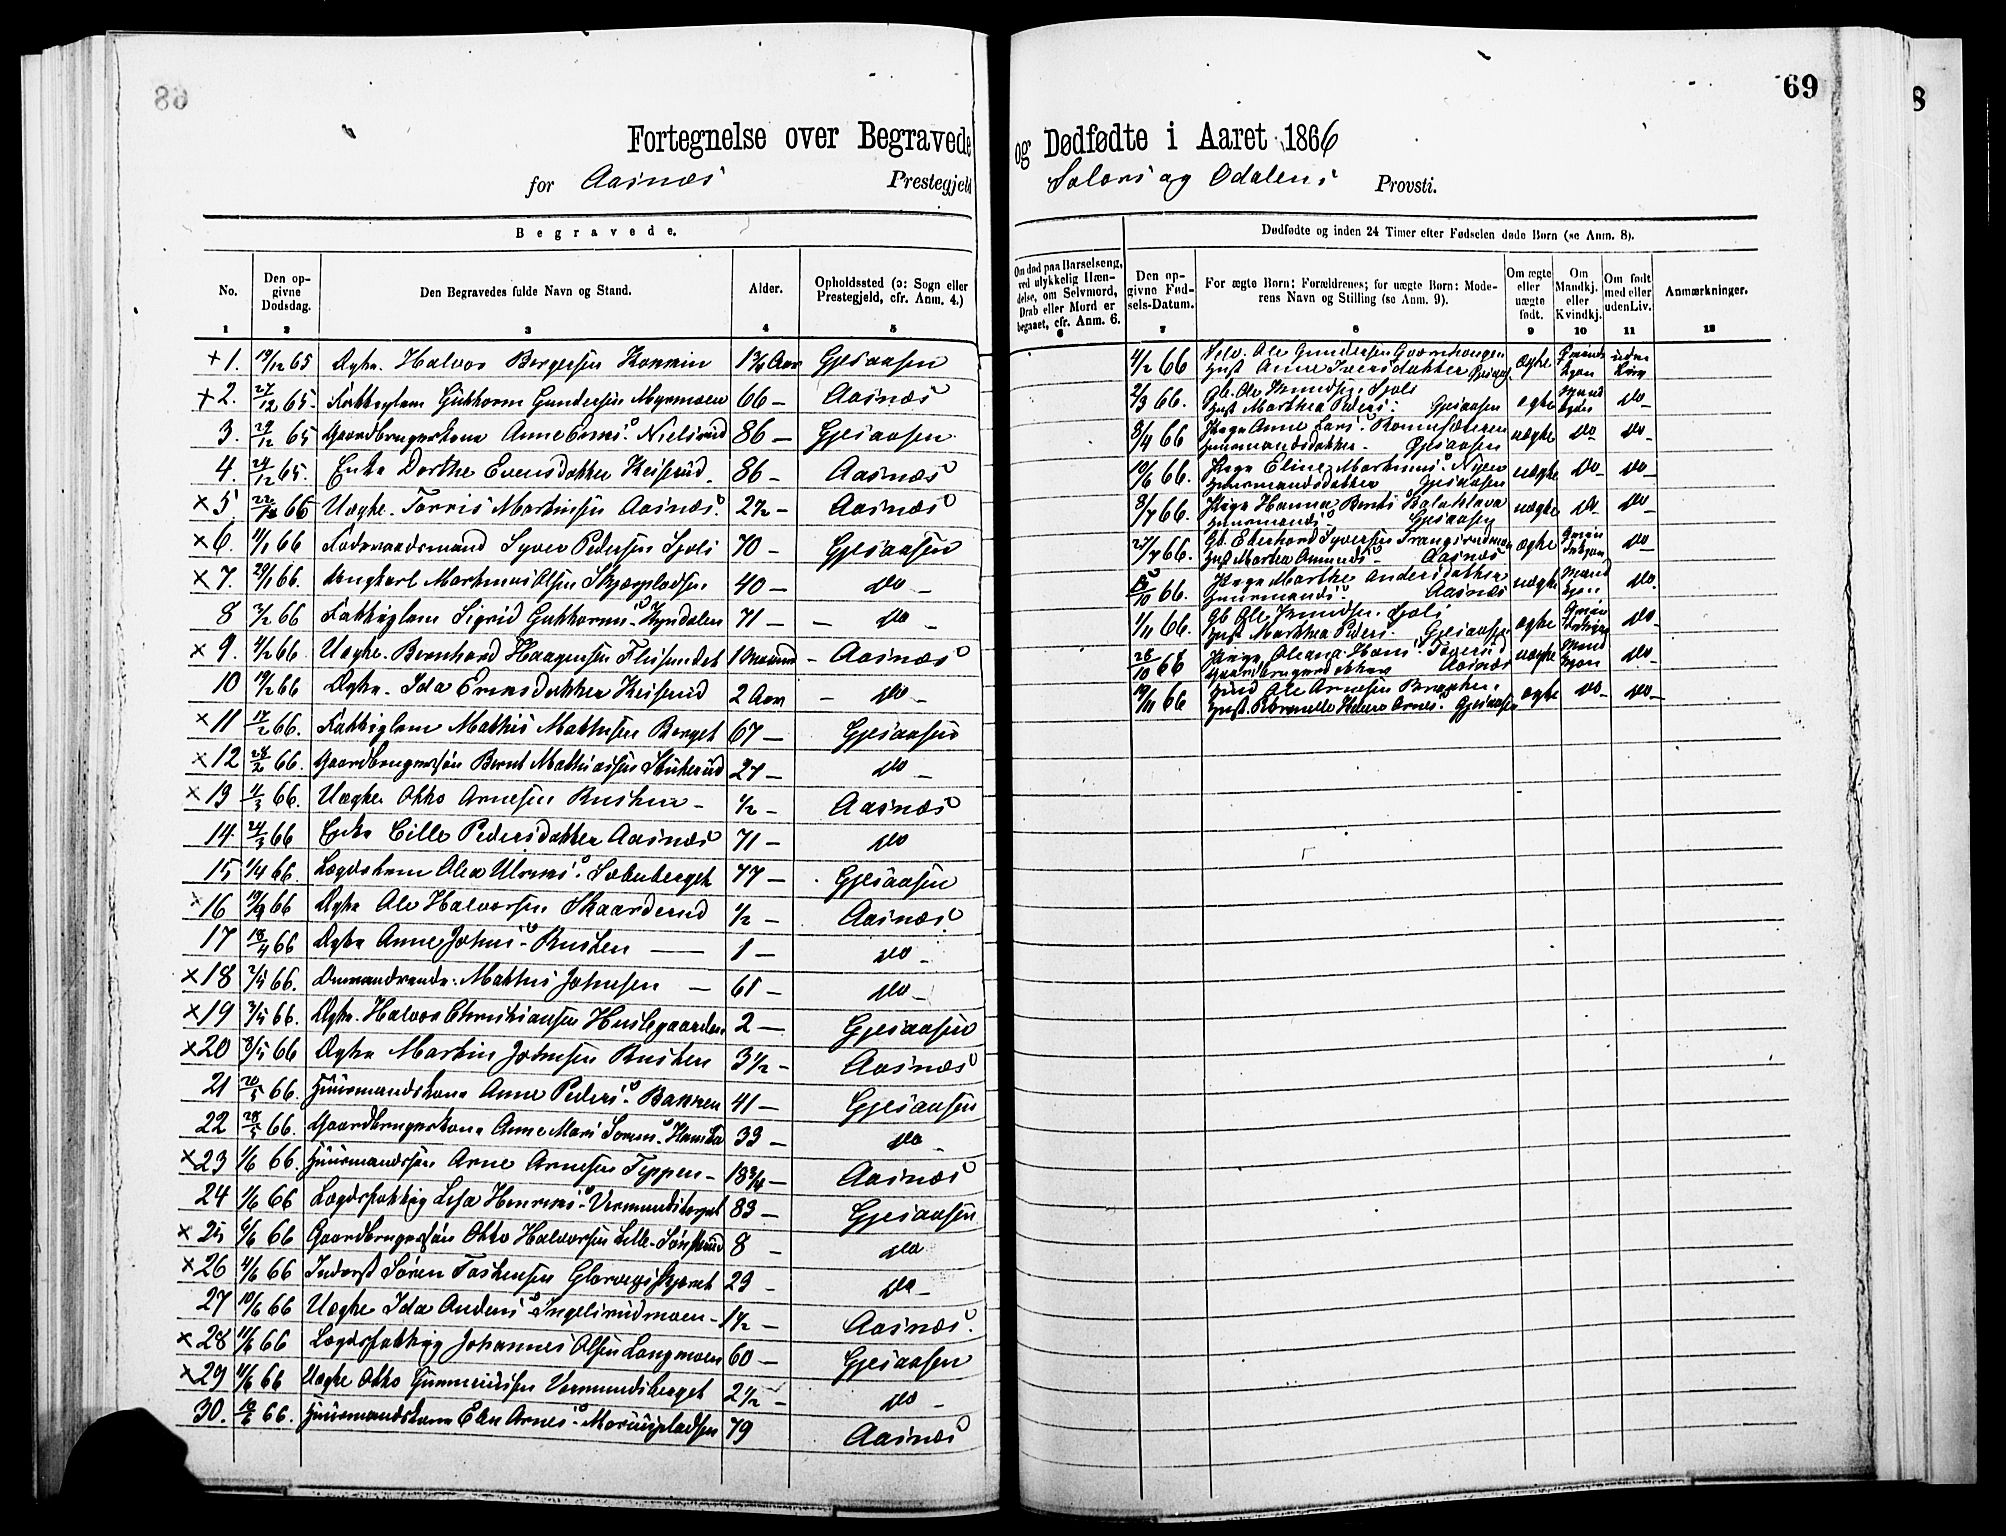 68
Fortegnelse over Begravede
for Aasnæs Prestegjeld
Begravede.
No.
Den opgivne Dødsdag.
Den Begravedes fulde Navn og Stand.
Alder.
Opholdssted (ɔ: Sogn eller Prestegjeld, cfr. Anm. 4.)
1 2 3 4 5
+1. 19/12 65 Ægte. Halvor Bergersen 13/4 Aar Gjesaasen
+2. 27/12 65. Fattiglem Guttorm Gundersen Myrmoen 66 — Aasnæs
3. 29/12 65 Gaardbrugerkone Anne Nielsrud 86 — Gjesaasen
4. 24/12 65. Enke Dorthe Evensdatter Keiserud 86 — Aasnæs
×5 22/12 65 Uægte. Torris Martinsen Aasnæs. 2 1/2 — Aasnæs
×6. 11/1 66 Foderaadsmand Syver Pedersen Sjoli 70 — Gjesaasen
×7. 29/1 66. Ungkarl Martinus Olsen Skjærpladsen 40 — do
8 2/2 66 Fattiglem Sigrid Guttorms. Kyndalen 71 — do
×9. 4/2 66 Uægte. Bernhard Haagensen Flisundet 1 Maaned Aasnæs
10 19/2 66 Ægte. Ida Keiserud 2 Aar do
×11 17/2 66. Fattiglem Mathis Mathisen Berget 67 — Gjesaasen
×12 28/2 66. Gaardbrugersøn Bernt Mathiassen 27 — do
×13 11/3 66. Uægte Otto Arnesen Rusten 1/2 — Aasnæs
14. 24/3 66 Enke Cille Pedersdatter Aasnæs 71 — do
15 1/4 66. Lægdslem Olea Sæterberget 77 — Gjesaasen
×16 19/4 66 Ægte Ole Halvorsen Skaarderud 1/2 — Aasnæs
17 18/4 66 Ægte Anne Johns. Rusten — 1 — do
×18 2/5 66. Mathis Johnsen — 61 — do
×19 3/5 66. Ægte. Halvor Christiansen 2 — Gjesaasen
×20 8/5 66 Ægte Martin Johnsen Rusten 3 1/2 — Aasnæs
21 20/5 66. Huusmandskone Anne Peders. Bakken 41 — Gjesaasen
22 28/5 66. Gaardbrugerkone Anne Mari Sørens. 33 — do
×23 1/6 66. Huusmandssøn Arne Arnesen Teppen 18 3/4 — Aasnæs
24 1/6 66 Lægdsfattig Lisa Henriks. Vermundsberget 83 — Gjesaasen
×25 6/6 66 Gaardbrugersøn Otto Halvorsen Lille-Sønsterud 8 — do
×26 4/6 66 Inderst Søren Torstensen 29 — do
27 10/6 66 Uægte Ida Anders. Ingelsrudmoen 1 1/2 — Aasnæs.
×28 11/6 66 Lægdsfattig Johannes Olsen Langmoen 60 — Gjesaasen
×29 11/6 66 Uægte Otto Gunneriussen Vermundsberget 2 1/2 — do
30. 12/6 66. Huusmandskone Arnes. 79 Aasnæs
69
og Dødfødte i Aaret 1866
Solørs og Odalens Provsti.
Dødfødte og inden 24 Timer efter Fødselen døde Børn (se Anm. 8).
Om død paa Barselseng, ved ulykkelig Hændelse, om Selvmord, Drab eller Mord er begaaet, cfr. Anm. 6.
Den opgivne Fødsels-Datum.
For ægte Børn: Forældrenes; for uægte Børn: Moderens Navn og Stilling (se Anm. 9).
Om ægte eller uægte født.
Om Mandkj. eller Kvindkj.
Om født med eller uden Liv.
Anmærkninger.
6 7 8 9 10 11 12
4/2 66 Selv. Ole Gundersen
Hust Anne Iversdatter ægte Qvindekjøn uden Liv
2/3 66. Gb. Ole Knudsen Sjoli
Hust Marthea Peders. Gjesaasen ægte Mandkjøn do
8/4 66 Pige Anne Lars.
Huusmandsdatter Gjesaasen uægte do do
10/6 66. Pige Eline Martinus. Nyen
Huusmandsdatter Gjesaasen uægte do do
3/7 66. Pige Hanna Bernts. Balaklava
Huusmands. Gjesaasen uægte do do
27/7 66. Gb. Eberhard Syversen
Hust Marthea Amunds. Aasnæs ægte do
10 66. Pige Marthe Andersdatter
Huusmands. Aasnæs uægte Mandkjøn do
1/11 66. Gb Ole Knudsen Sjoli
Hust Marthea Peders. Gjesaasen ægte do
28/10 66 Pige Oleana Hans.
Gaardbrugerdatter Aasnæs uægte Mandkjøn do
19/11 66 Ole Arnesen
Hust. Arnes. Gjesaasen ægte do do